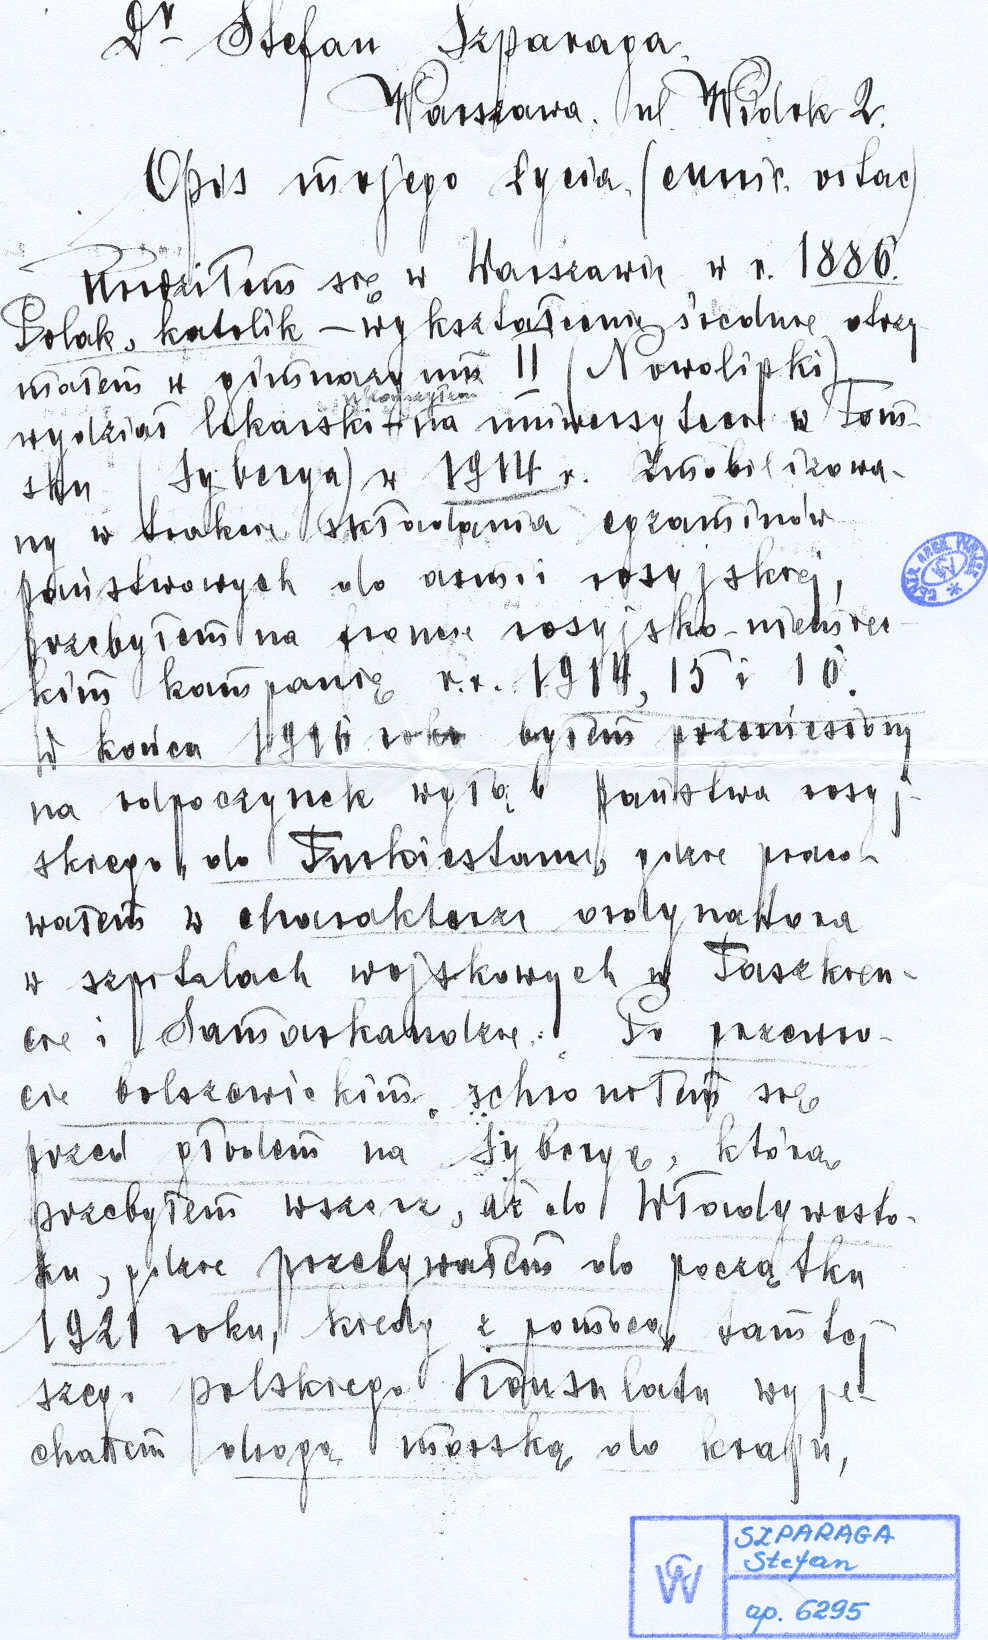 Dr Stefan Szparaga.
Warszawa. ul. Widok 2.
Opis mojego życia. (curric. vitae)
Urodziłem się w Warszawie w r. 1886.
Polak, katolik – wykształcenie średnie otrzy-
małem w gimnazyum II (Nowolipki)
ukończyłem
wydział lekarski na uniwersytecie w Tom-
sku (Syberya) w 1914 r. Zmobilizowa-
ny w trakcie składania egzaminów
państwowych do armii rosyjskiej,
przebyłem na froncie rosyjsko-niemiec-
kim kampanię r.r. 1914, 15 i 16.
W końcu 1916 roku byłem przeniesiony
na odpoczynek w głąb państwa rosyj-
skiego, do Turkiestanu, gdzie praco-
wałem w charakterze ordynatora
w szpitalach wojskowych w Taszkien-
cie i Samarkandzie. Po przewro-
cie bolszewickim schroniłem się
przed głodem na Syberyę, którą
przebyłem wszerz, aż do Władywosto-
ku, gdzie przebywałem do początku
1921 roku, kiedy z pomocą tamtej
szego polskiego Konsulatu wyje-
chałem drogą morską do kraju,
CAW
SZPARAGA
Stefan
ap. 6295